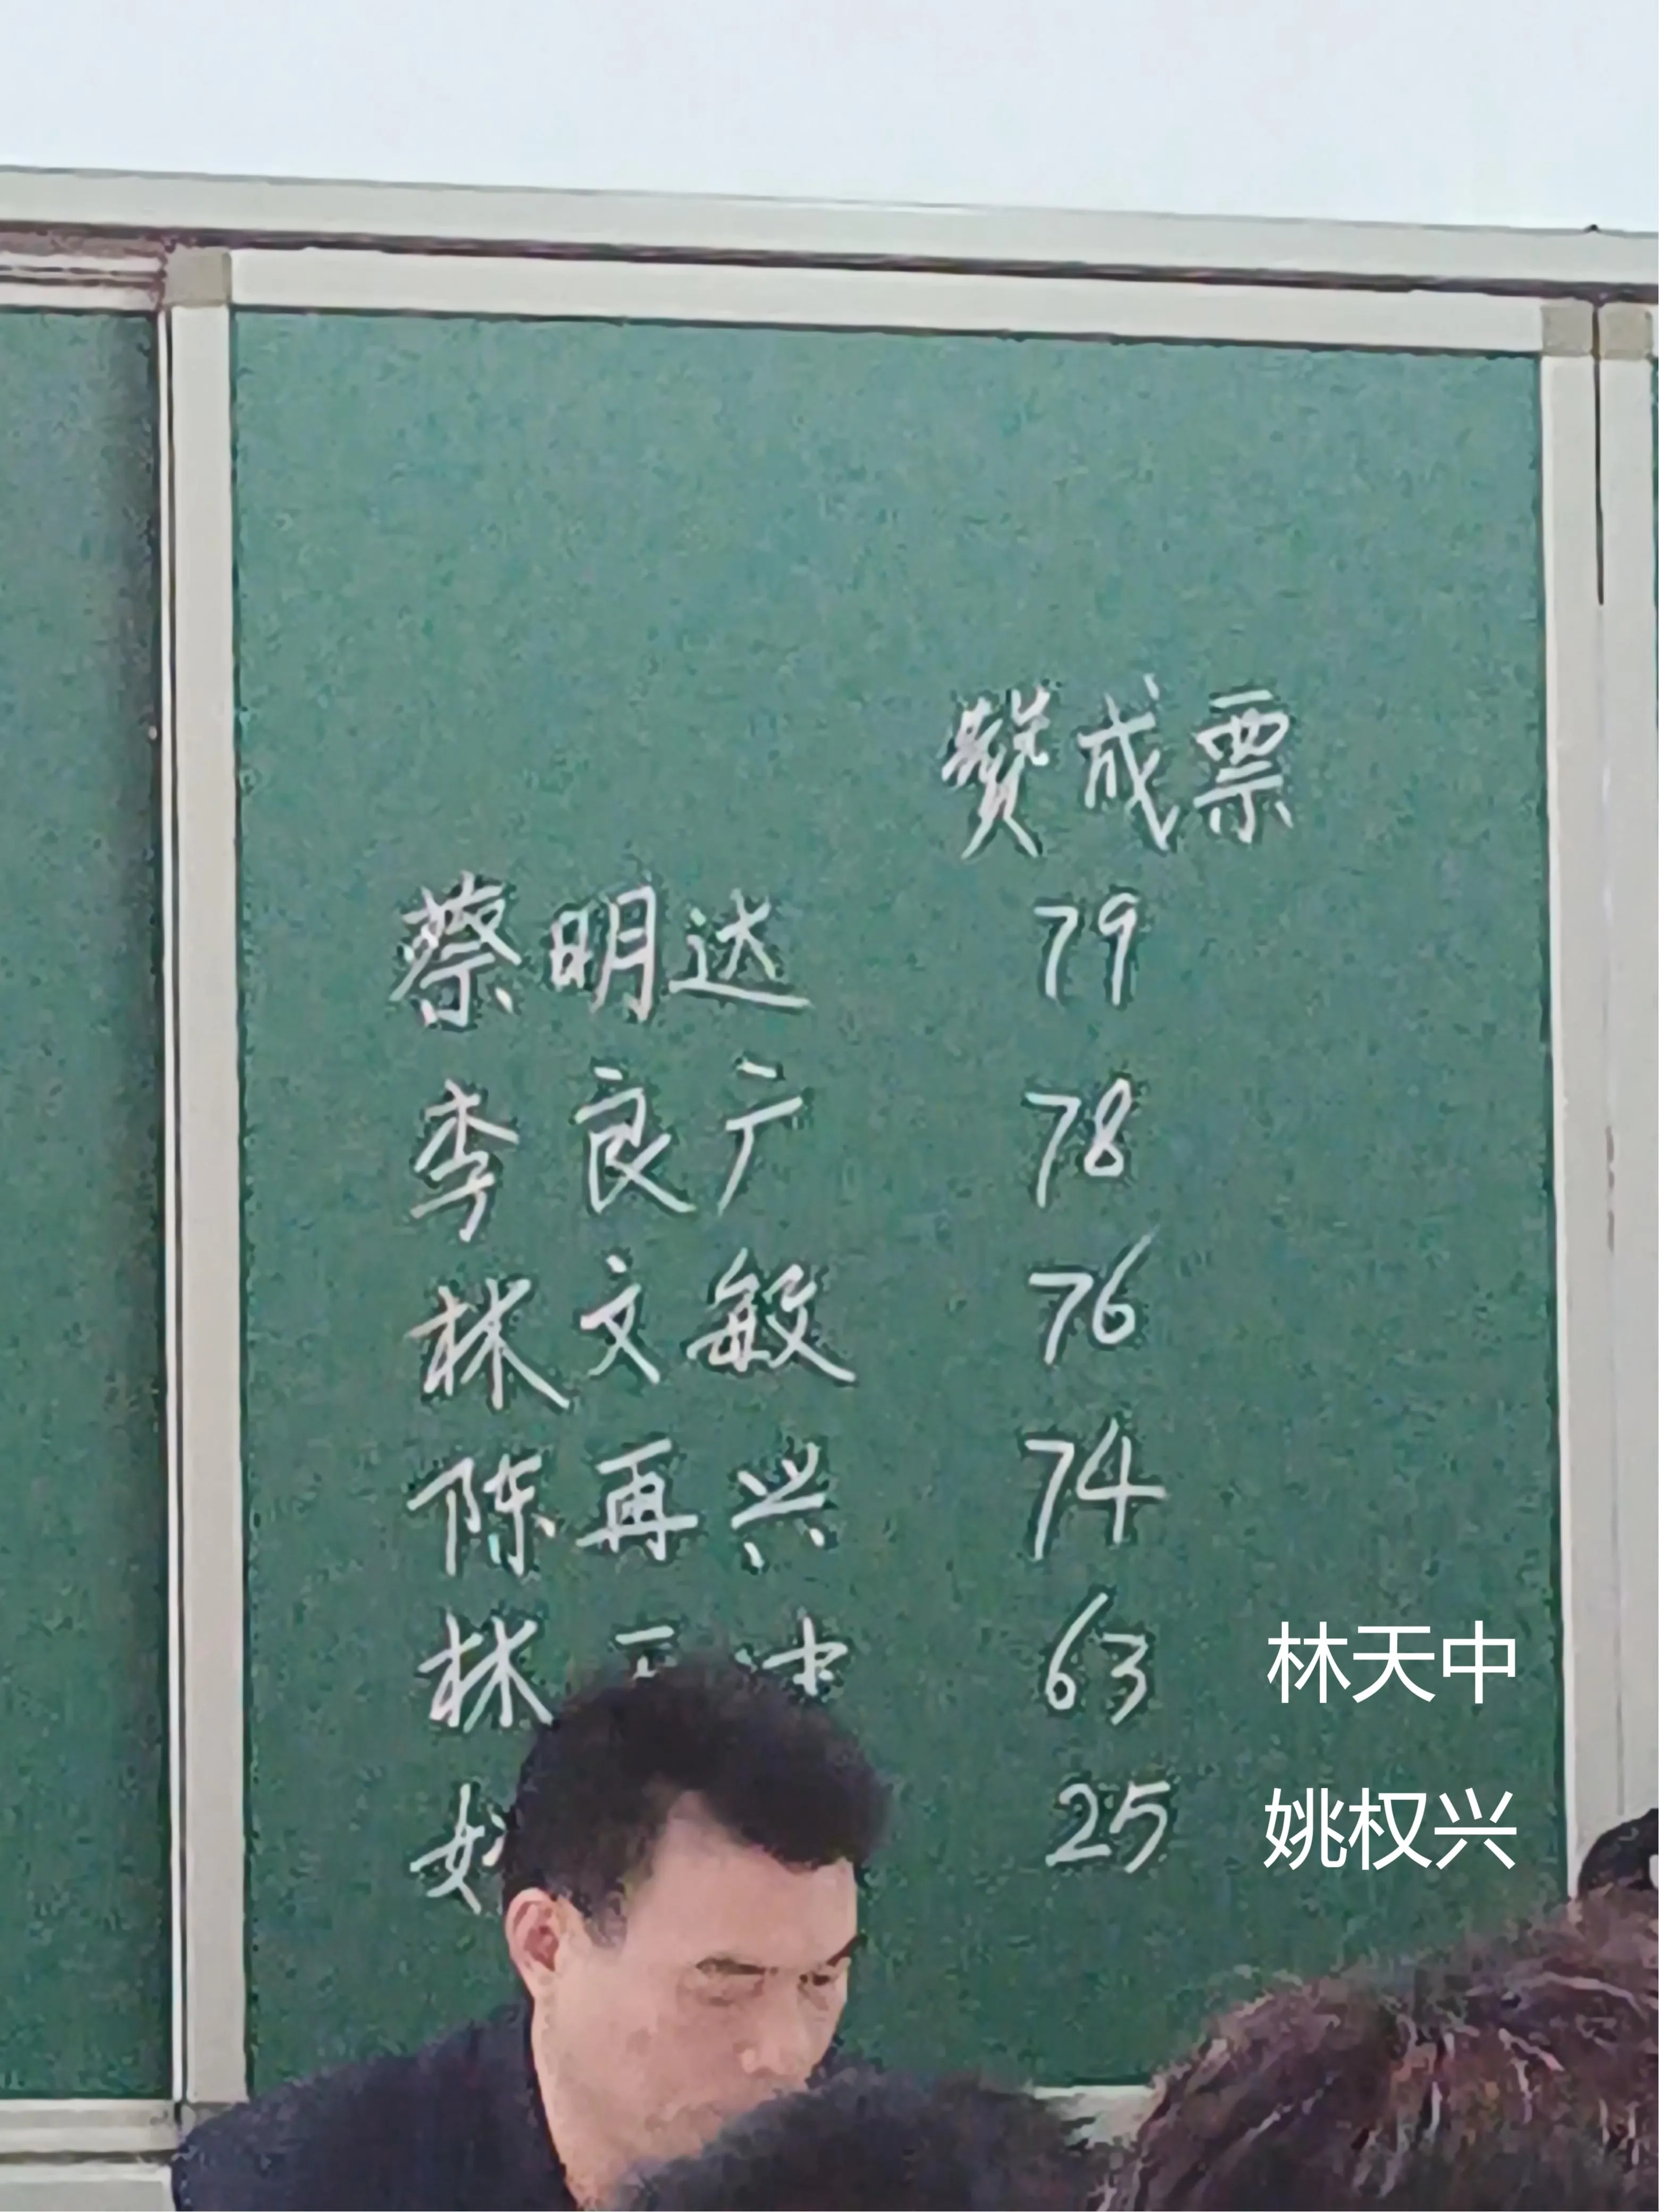 赞成票
蔡明达 79
李良广 78
林文敏 76
陈再兴 74
林天中 63 林天中
25 姚权兴